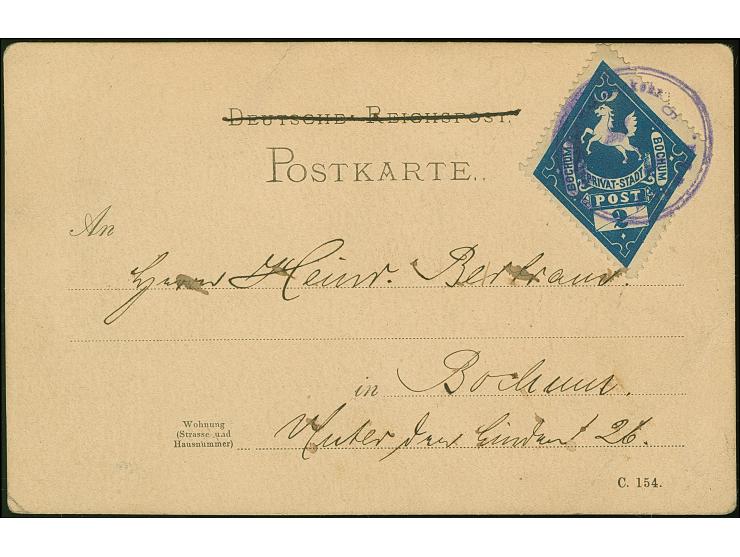 DEUTSCHE REICHSPOST.
POSTKARTE.
BOCHUM
BOCHUM
PRIVAT-STADT
POST
2
An
Herrn Heinr. Bertram.
in Bochum.
Wohnung
(Strasse und
Hausnummer)
Unter den Linden 26.
C. 154.